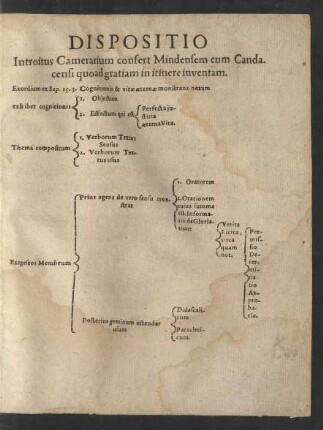 DISPOSITIO
Introitus Cameratium confert Mindensem cum Canda-
censi quoad gratiam in itinere inventam.
Exordium ex Sap. 15.3. Cognitionis & vitæ æternæ monstrans nexum
exhibet cognitionis
1. Objectum
2. Effectum qui est
Perfecta ju-
stitia
æterna Vita.
Thema compositum
1. Verborum Textus
Sensus
2. Verborum Tex-
tus usus
Exegesios Membrum
Prius agens de vero sensu mon-
strat
1. Oratorem
2. Orationem
cujus summa
est, informa-
tio de Gloria-
tione
Vetita
Licita,
circa
quam
not.
Præ-
mis-
sio
De-
ter-
mi-
na-
tio
Ap-
pro-
ba-
tio.
Posterius geminum ostendit
usum
Didascali-
cum
Paracleti-
cum.